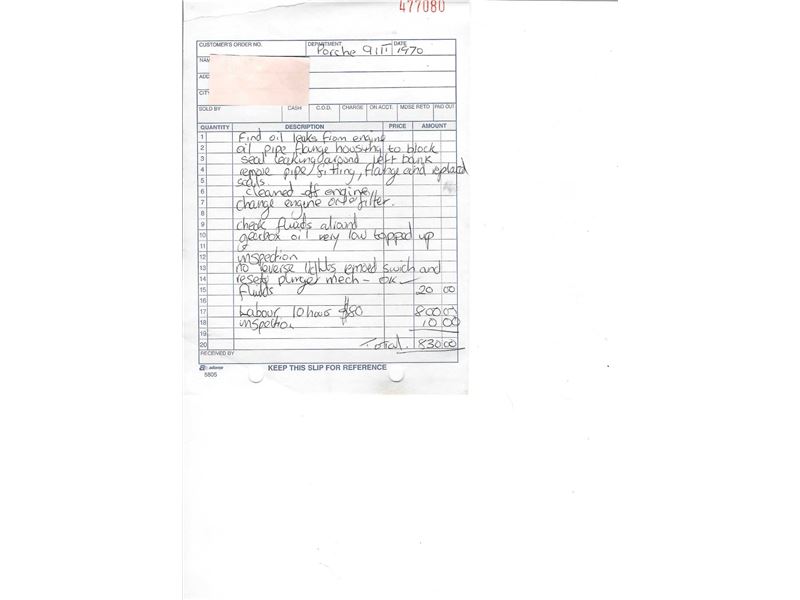 477080
CUSTOMER'S ORDER NO. DEPARTMENT DATE
Porche 911T 1970
NAM
ADD
CITY
SOLD BY CASH C.O.D. CHARGE ON ACCT. MDSE RETD PAID OUT
QUANTITY DESCRIPTION PRICE AMOUNT
1 Find oil leaks from engine
2 oil pipe flange housing to block
3 seal leaking around left bank
4 remove pipe/fitting, flange and replaced
5 seals
6 cleaned off engine
7 change engine oil + filter.
8
9 check fluids around
10 gearbox oil very low topped up
11
12 inspection
13 no reverse lights removed swich and
14 reset plunger mech - OK
15 fluids 20 00
16
17 Labour 10 hours $80 800 00
18 inspection 10 00
19
20 Total. 830 00
RECEIVED BY
adams KEEP THIS SLIP FOR REFERENCE
5805